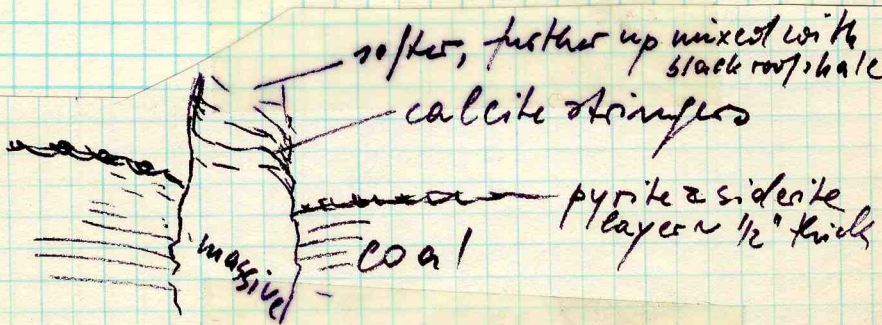 softer, further up mixed with
black roof shale
calcite stringers
pyrite & siderite
layer ~ 1/2" thick
coal
massive